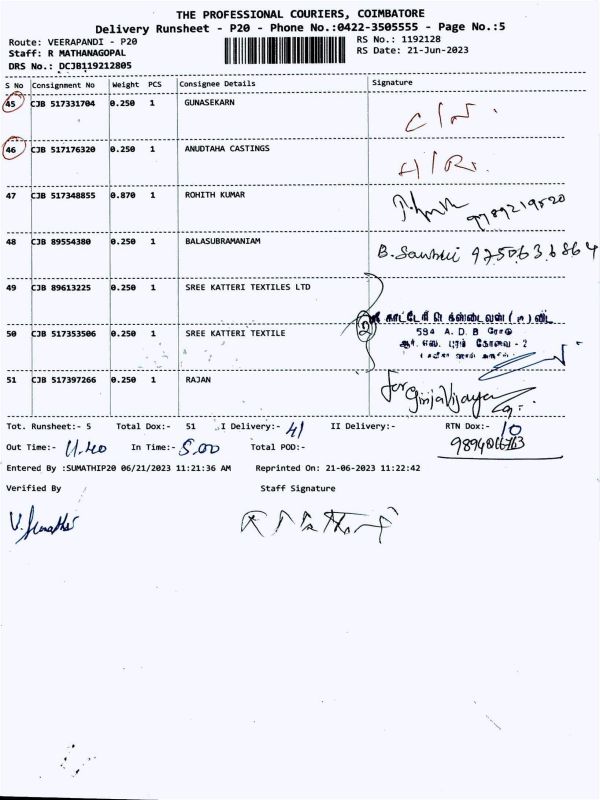 THE PROFESSIONAL COURIERS, COIMBATORE
Delivery Runsheet - P20 - Phone No.:0422-3505555 - Page No.:5
Route: VEERAPANDI - P20
RS No.: 1192128
Staff: R MATHANAGOPAL
RS Date: 21-Jun-2023
DRS No.: DCJB119212805
S No Consignment No Weight PCS Consignee Details Signature
45 CJB 517331704 0.250 1 GUNASEKARN
C/N.
46 CJB 517176320 0.250 1 ANUDTAHA CASTINGS
A/R.
47 CJB 517348855 0.870 1 ROHITH KUMAR
9789219520
48 CJB 89554380 0.250 1 BALASUBRAMANIAM
B. 9750636864
49 CJB 89613225 0.250 1 SREE KATTERI TEXTILES LTD
ஸ்ரீ காட்டேரி டெக்ஸ்டைல்ஸ் (பி) லிட்
50 CJB 517353506 0.250 1 SREE KATTERI TEXTILE
2
594 A. D. B ரோடு
ஆர். எஸ். புரம் கோவை - 2
51 CJB 517397266 0.250 1 RAJAN
for Girija Vijayan
Tot. Runsheet:- 5 Total Dox:- 51 I Delivery:- 41 II Delivery:- RTN Dox:- 10
Out Time:- 11.40 In Time:- 5.00 Total POD:-
Entered By :SUMATHIP20 06/21/2023 11:21:36 AM Reprinted On: 21-06-2023 11:22:42
Verified By Staff Signature